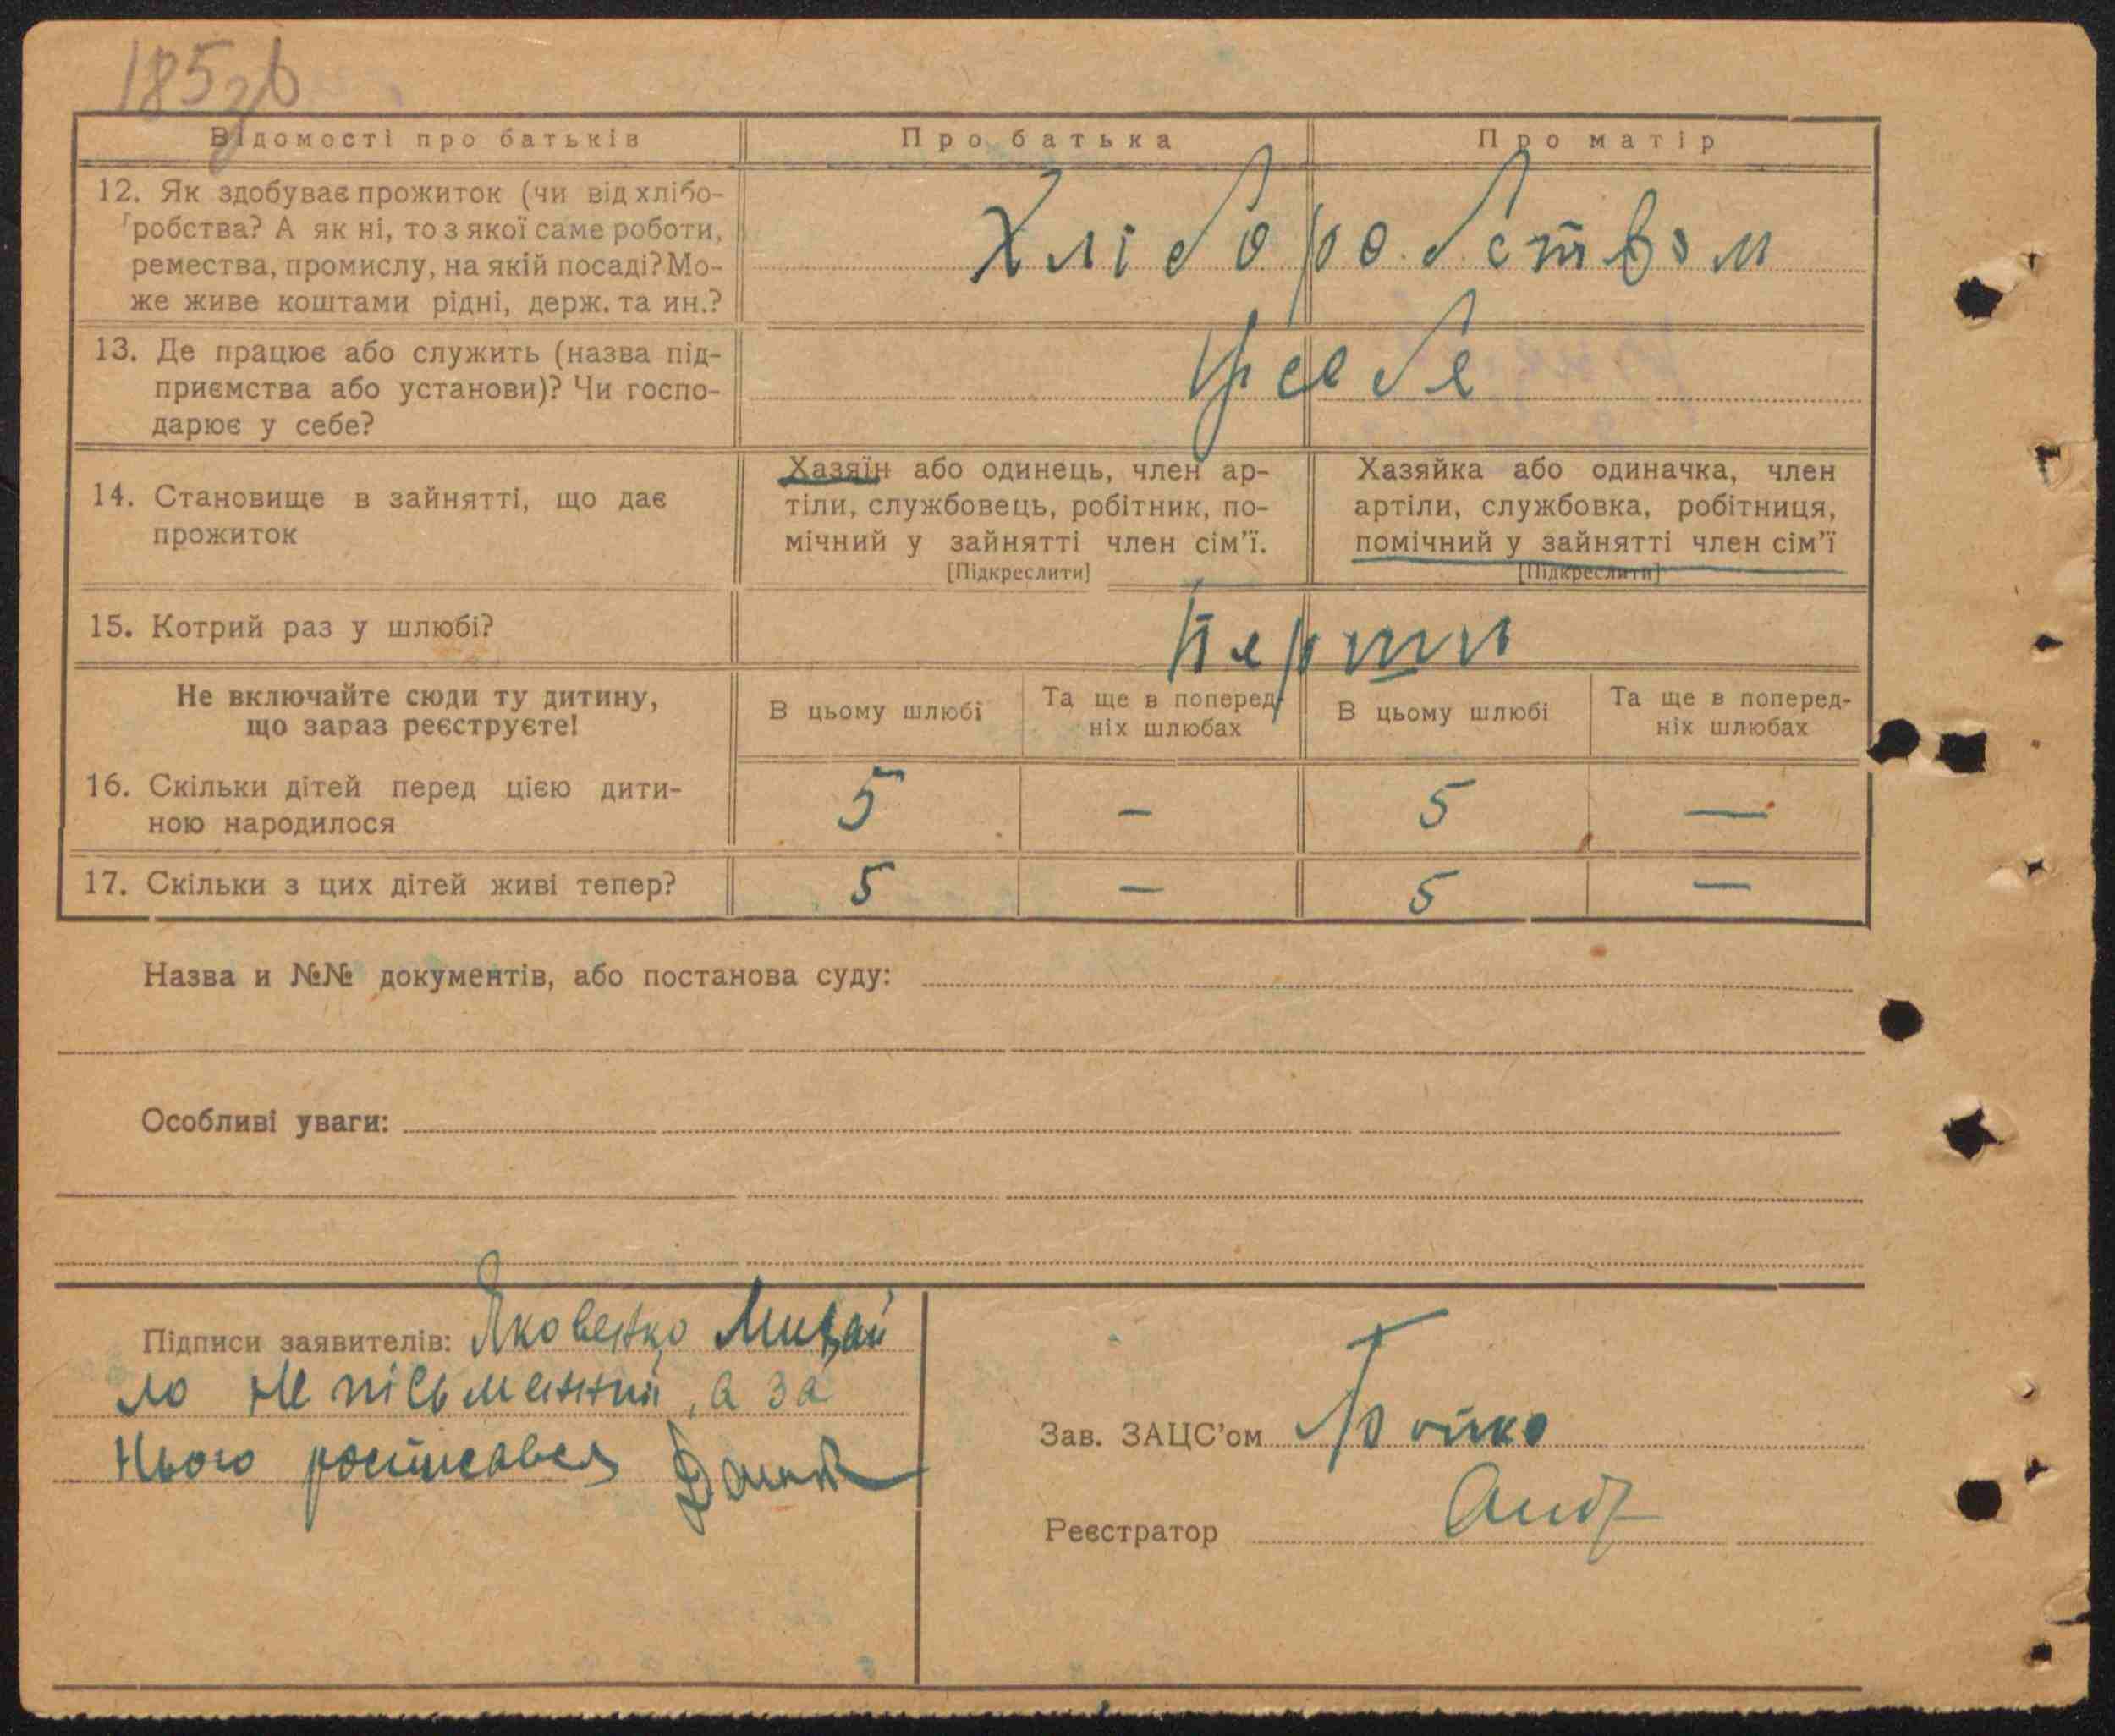 185зв
Відомості про батьків
Про батька
Про матір
12. Як здобуває прожиток (чи від хлібо-
робства? А як ні, то з якої саме роботи,
ремества, промислу, на якій посаді? Мо-
же живе коштами рідні, держ. та ин.?
Хліборобством
13. Де працює або служить (назва під-
приємства або установи)? Чи госпо-
дарює у себе?
У себе
14. Становище в зайнятті, що дає
прожиток
Хазяїн або одинець, член ар-
тіли, службовець, робітник, по-
мічний у зайнятті член сім'ї.
[Підкреслити]
Хазяйка або одиначка, член
артіли, службовка, робітниця,
помічний у зайнятті член сім'ї
[Підкреслити]
15. Котрий раз у шлюбі?
перши
Не включайте сюди ту дитину,
що зараз реєструєте!
В цьому шлюбі
Та ще в поперед-
ніх шлюбах
В цьому шлюбі
Та ще в поперед-
ніх шлюбах
16. Скільки дітей перед цією дити-
ною народилося
5 — 5 —
17. Скільки з цих дітей живі тепер?
5 — 5 —
Назва и №№ документів, або постанова суду:
Особливі уваги:
Підписи заявителів: Яковенко Михай
ло не пісьменний, а за
нього росписався
Зав. ЗАЦС'ом Бойко
Реєстратор